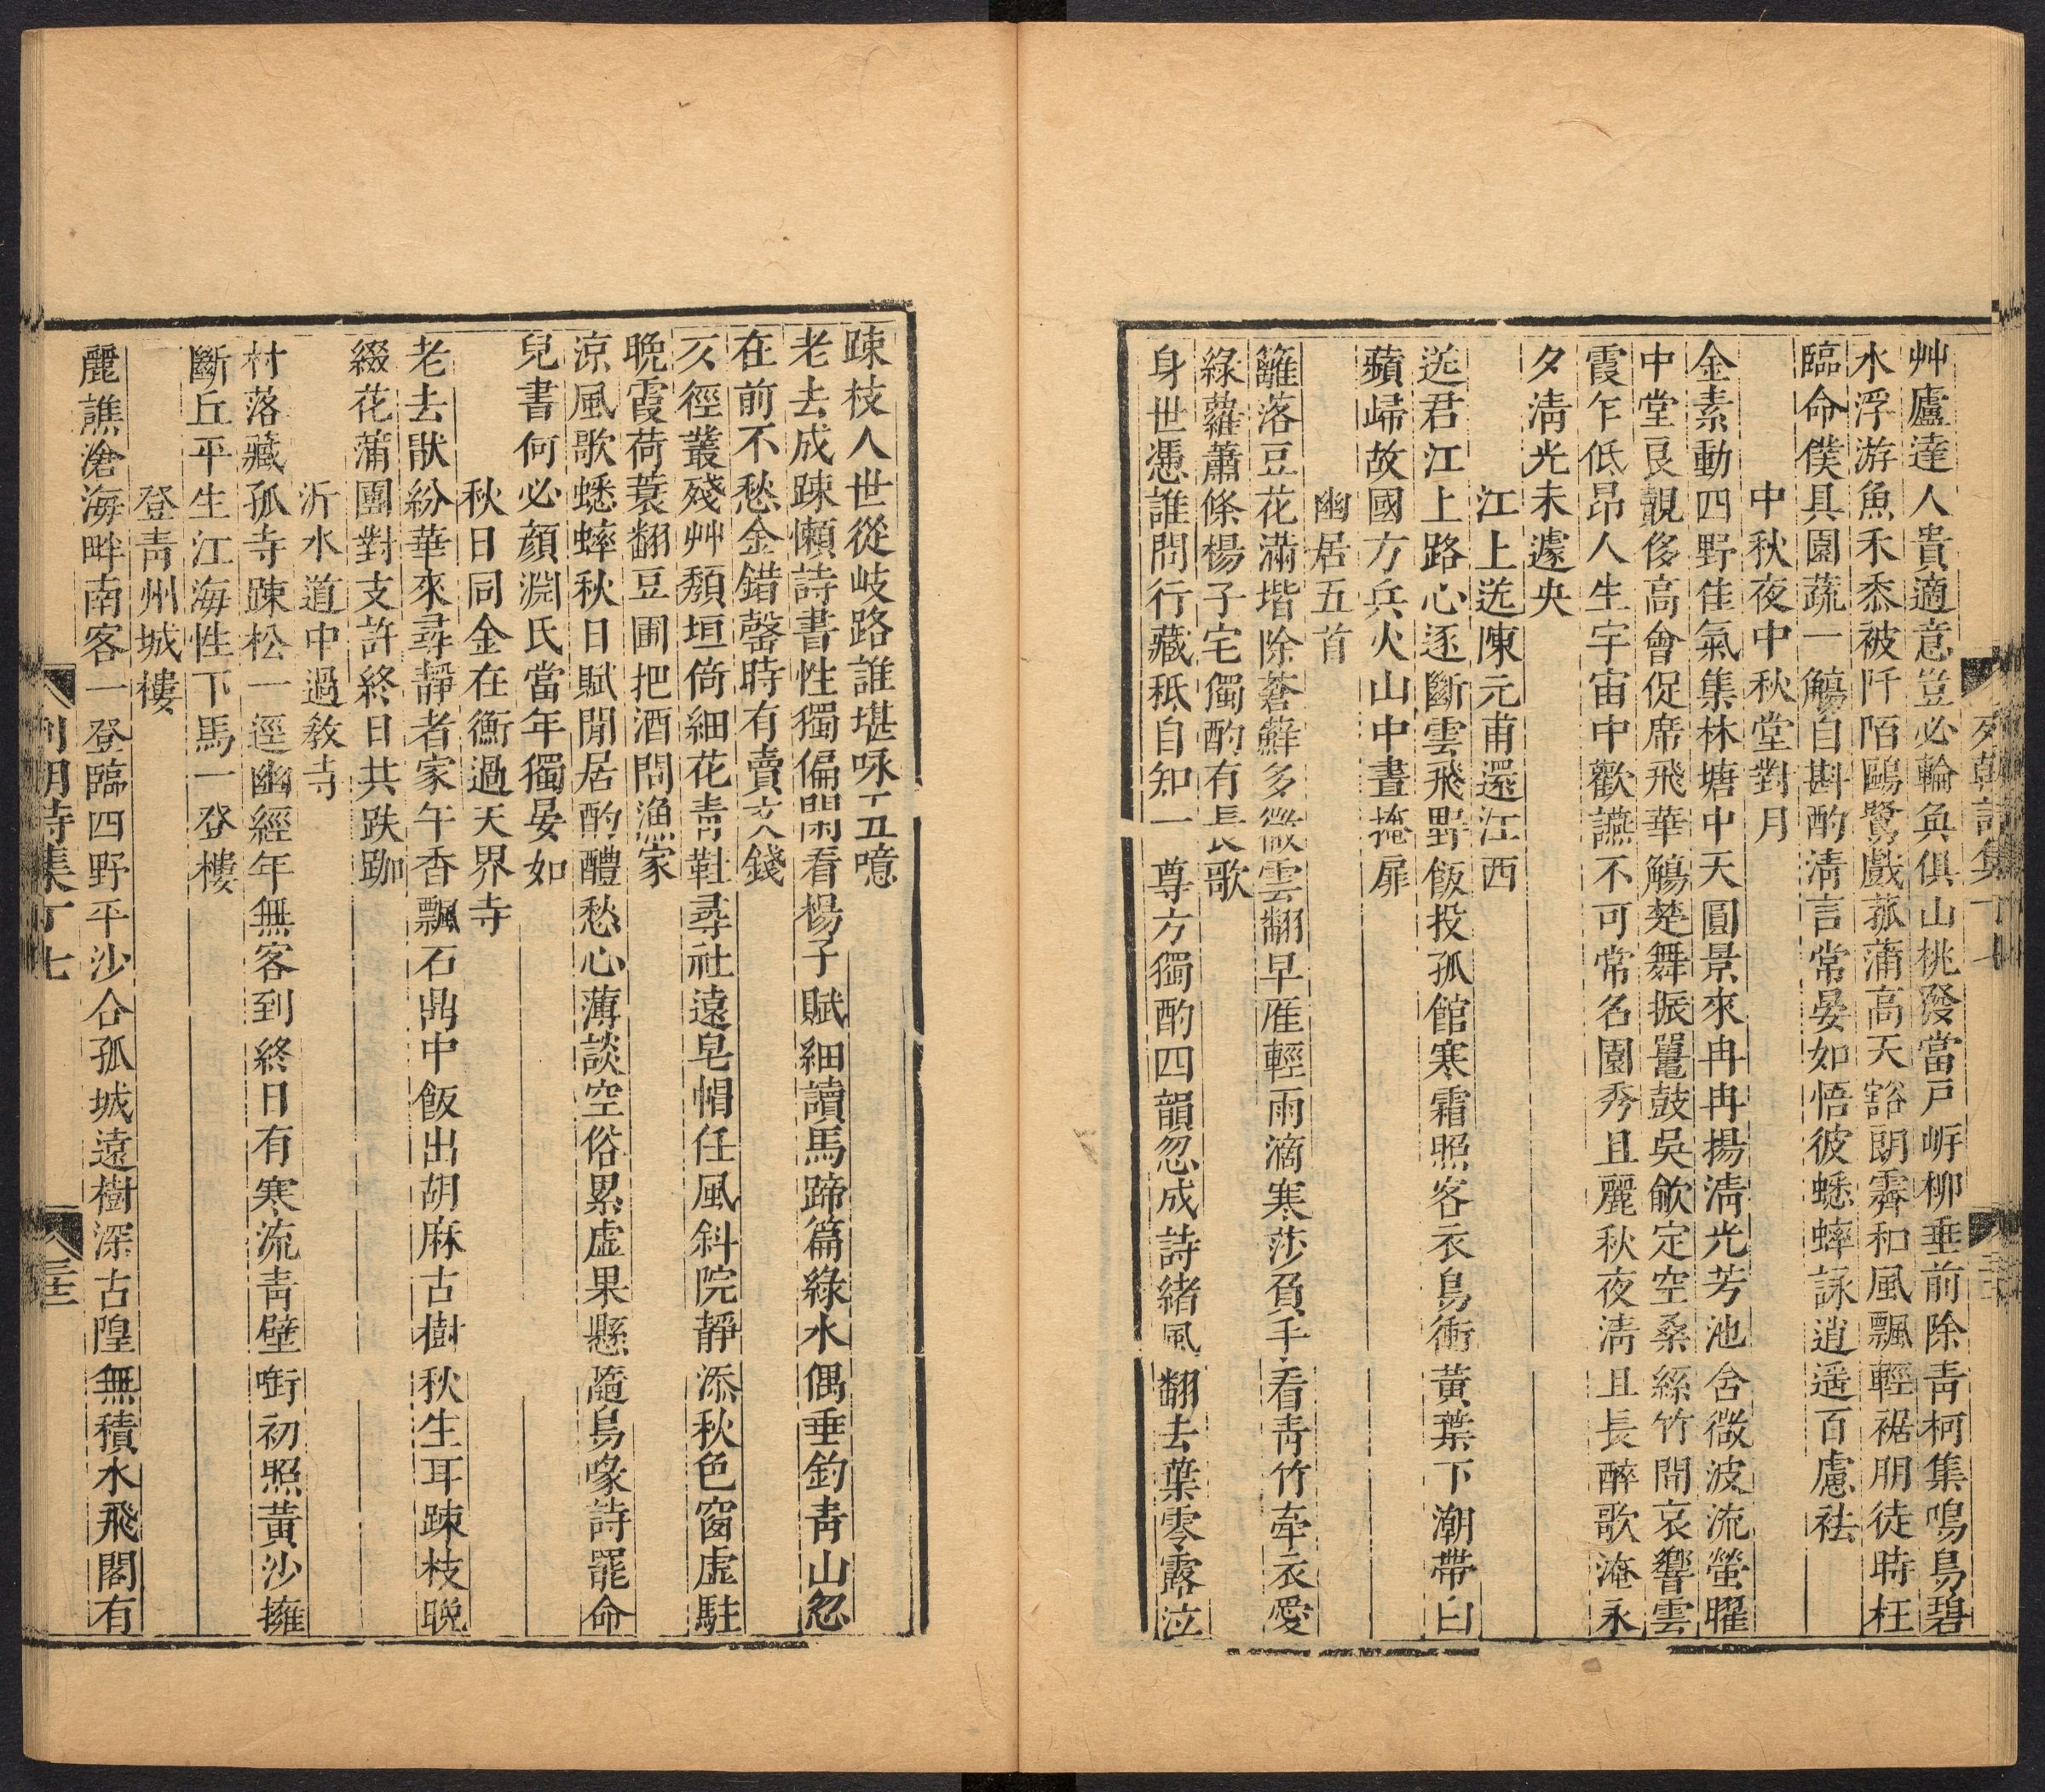 艸廬達人貴適意豈必輪奐俱山桃發當戸㟁柳垂前除靑柯集鳴鳥碧
水浮游魚禾黍被阡陌鷗鷺戲菰蒲高天豁朗霽和風飄輕裾朋徒時枉
臨命僕具園蔬一觴自斟酌淸言常晏如悟彼蟋蟀詠逍遥百慮袪
中秋夜中秋堂對月
金素動四野佳氣集林塘中天圓景來冉冉揚淸光芳池舍微波流螢曜
中堂良覿侈高會促席飛華觴楚舞振鼍鼓吳歈定空桑絲竹間哀響雲
霞乍低昂人生宇宙中歡讌不可常名園秀且麗秋夜淸且長醉歌淹永
夕淸光未遽央
江上送陳元甫還江西
送君江上路心逐斷雲飛野飯投孤館寒霜照客衣鳥衝黃葉下潮帶白
蘋歸故國方兵火山中晝掩扉
幽居五首
籬落豆花滿堦除蒼蘚多微雲翻早雁輕雨滴寒莎負手看靑竹牽衣愛
綠蘿蕭條楊子宅獨酌有長歌
身世憑誰問行藏秪自知一尊方獨酌四韻忽成詩緒風翻去葉零露泣
踈枝人世從岐路誰堪咏五噫
老去成踈懶詩書性獨偏閑看楊子賦細讀馬蹄篇綠水偶垂釣靑山忽
在前不愁金錯罄時有賣文錢
仄徑叢殘艸頹垣倚細花靑鞋尋社遠皂帽任風斜院靜添秋色窗虛駐
晩霞荷蓑翻豆圃把酒問漁家
涼風歌蟋蟀秋日賦閒居酌醴愁心薄談空俗累虛果懸隨鳥喙詩罷命
兒書何必顏淵氏當年獨晏如
秋日同金在衡過天界寺
老去猒紛華來尋靜者家午香飄石鼎中飯出胡麻古樹秋生耳踈枝晩
綴花蒲團對支許終日共趺跏
沂水道中過敎寺
村落藏孤寺踈松一逕幽經年無客到終日有寒流靑壁銜初照黃沙擁
斷丘平生江海性下馬一登樓
登靑州城樓
麗譙滄海畔南客一登臨四野平沙合孤城遠樹深古隍無積水飛閣有
列朝詩集丁七